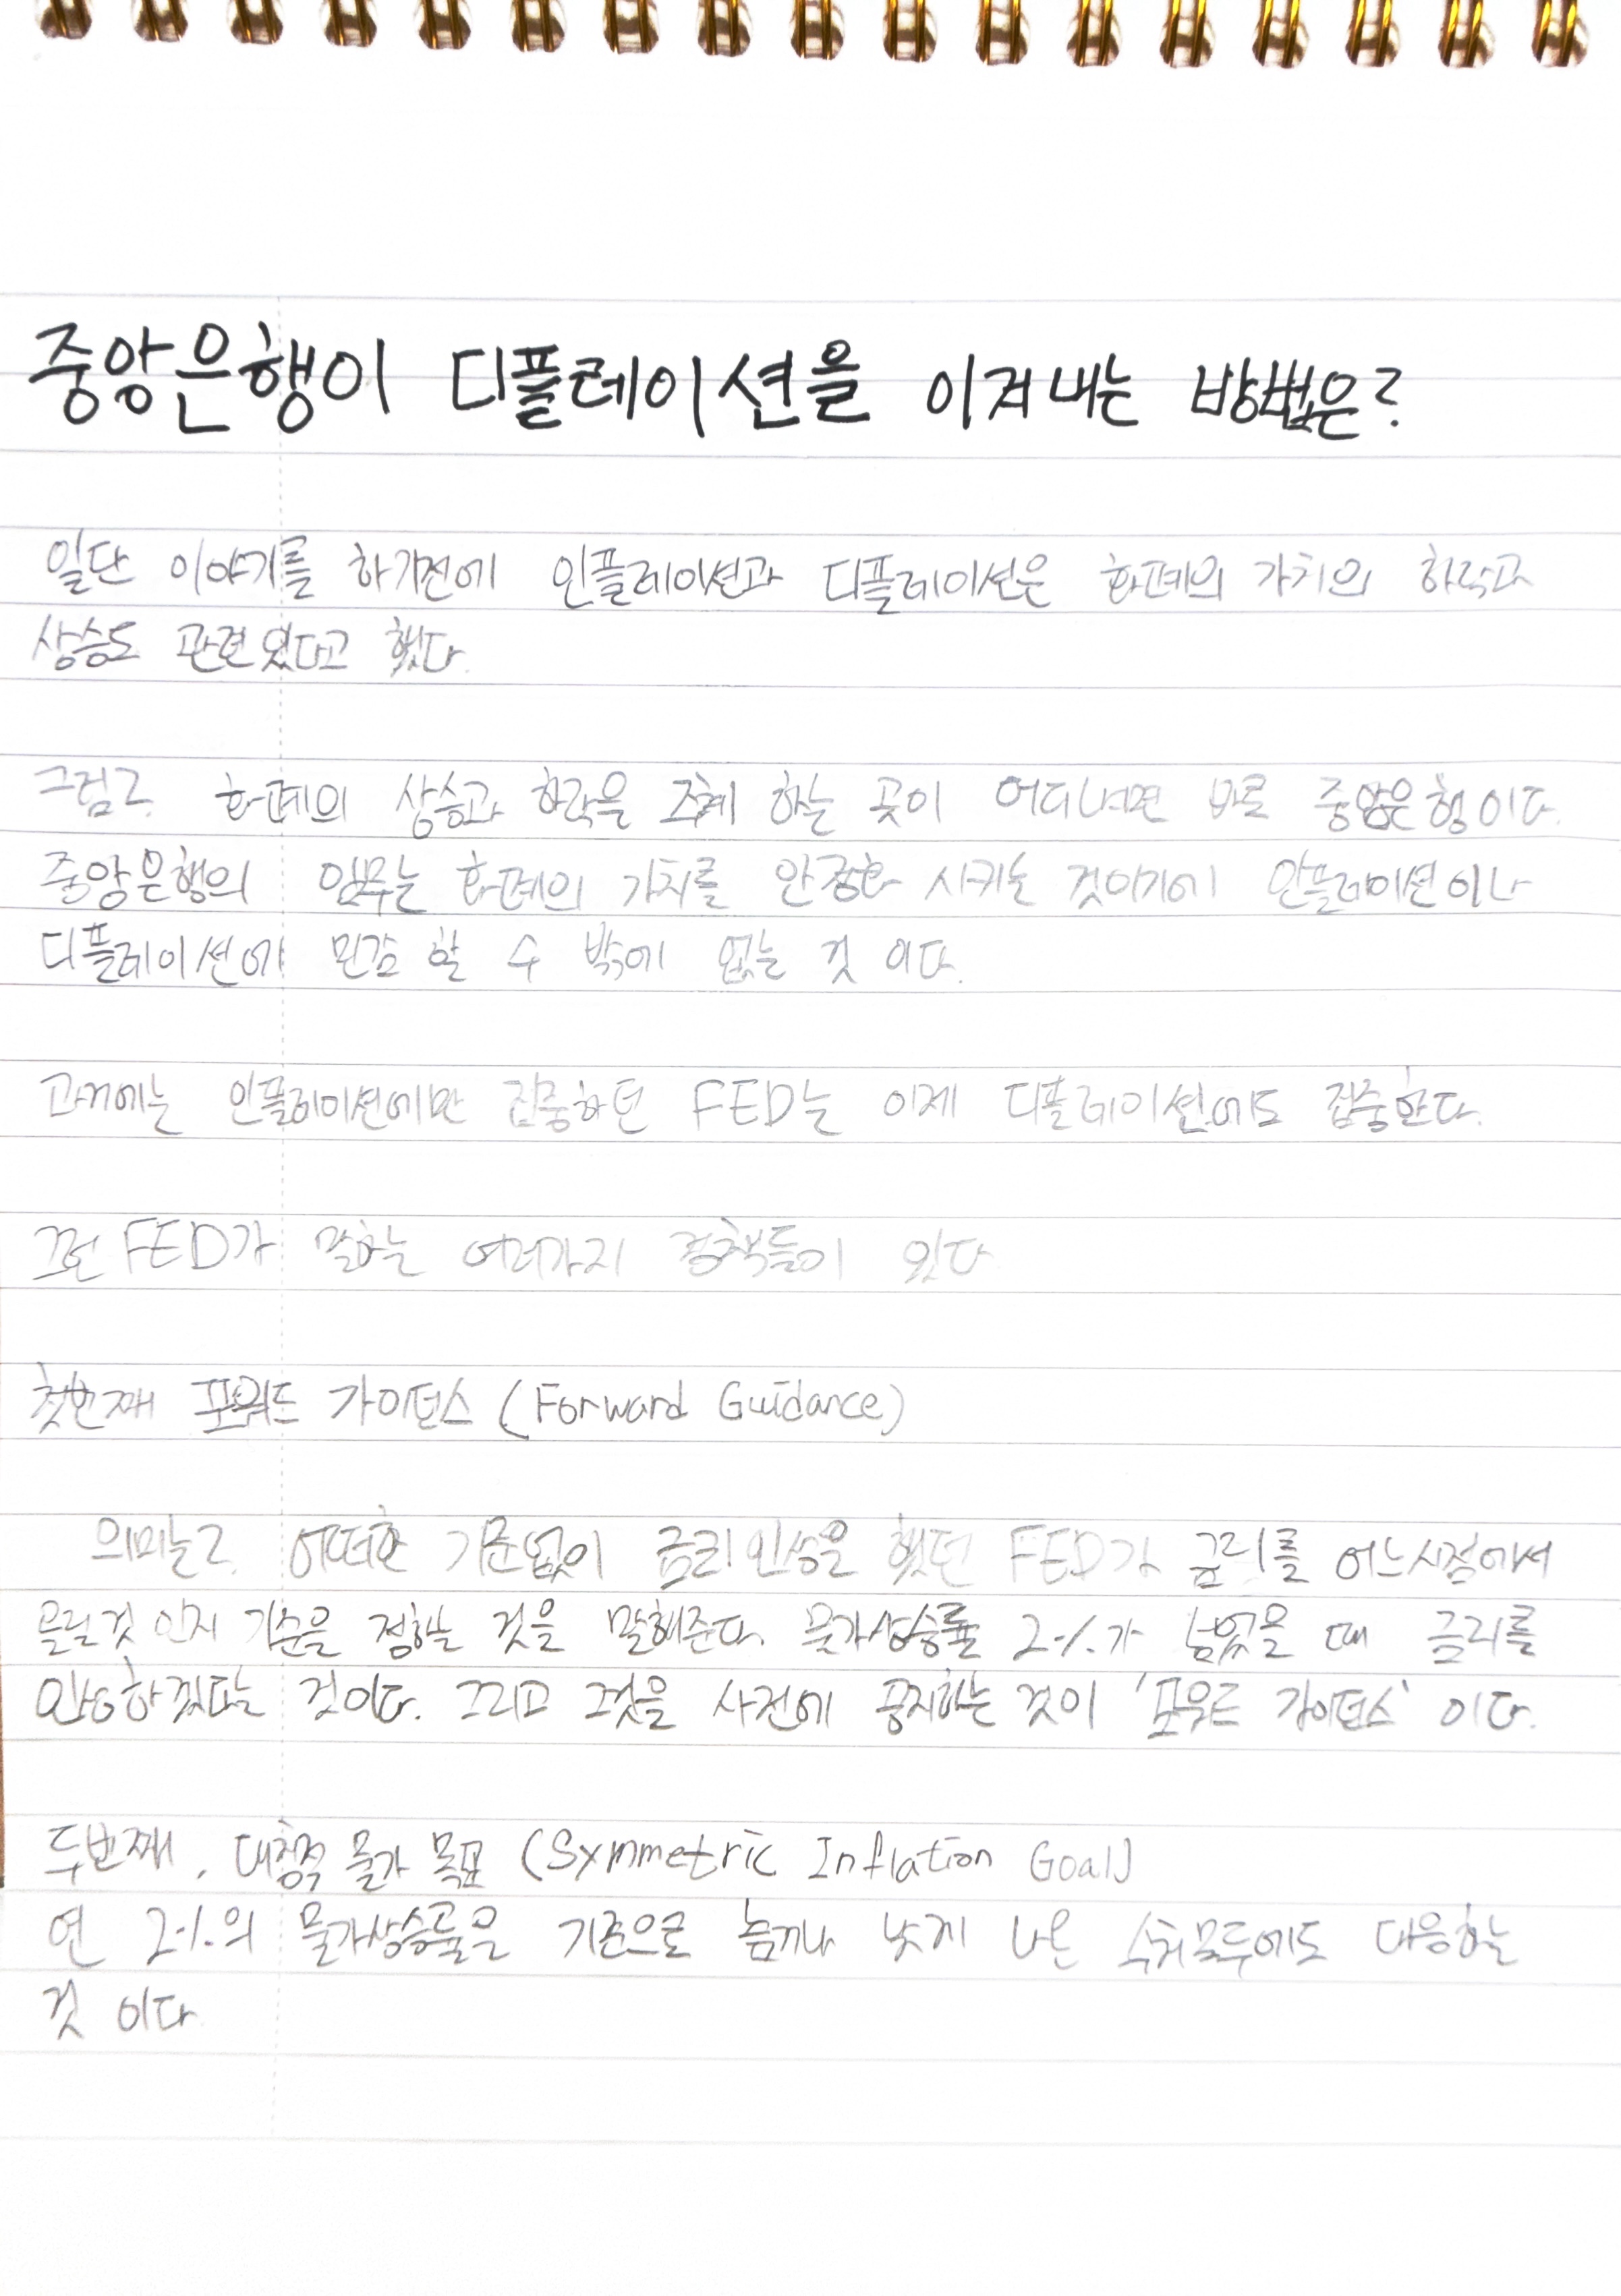 중앙은행이 디플레이션을 이겨내는 방법은?
일단 이야기를 하기전에 인플레이션과 디플레이션은 화폐의 가치의 하락과
상승도 관련있다고 했다.
그럼 화폐의 상승과 하락을 하는 곳이 어디냐면 바로 중앙은행이다.
중앙은행의 임무는 화폐의 가치를 안정화 시키는 것이기에 인플레이션이나
디플레이션에 민감 할 수 밖에 없는 것 이다.
과거에는 인플레이션에만 집중하던 FED는 이제 디플레이션에도 집중한다.
그런 FED가 말하는 여러가지 정책들이 있다
첫번째 포워드 가이던스 (Forward Guidance)
의미는 어떠한 기준없이 금리인상을 했던 FED가 금리를 어느시점에서
올릴것 인지 기준을 정하는 것을 말해준다. 물가상승률 2%가 넘었을 때 금리를
인상하겠다는 것이다. 그리고 그것을 사전에 공지하는 것이 '포워드 가이던스' 이다.
두번째, 대칭적 물가 목표 (Symmetric Inflation Goal)
연 2%의 물가상승률을 기준으로 높거나 낮게 나온 수치모두에도 대응하는
것 이다